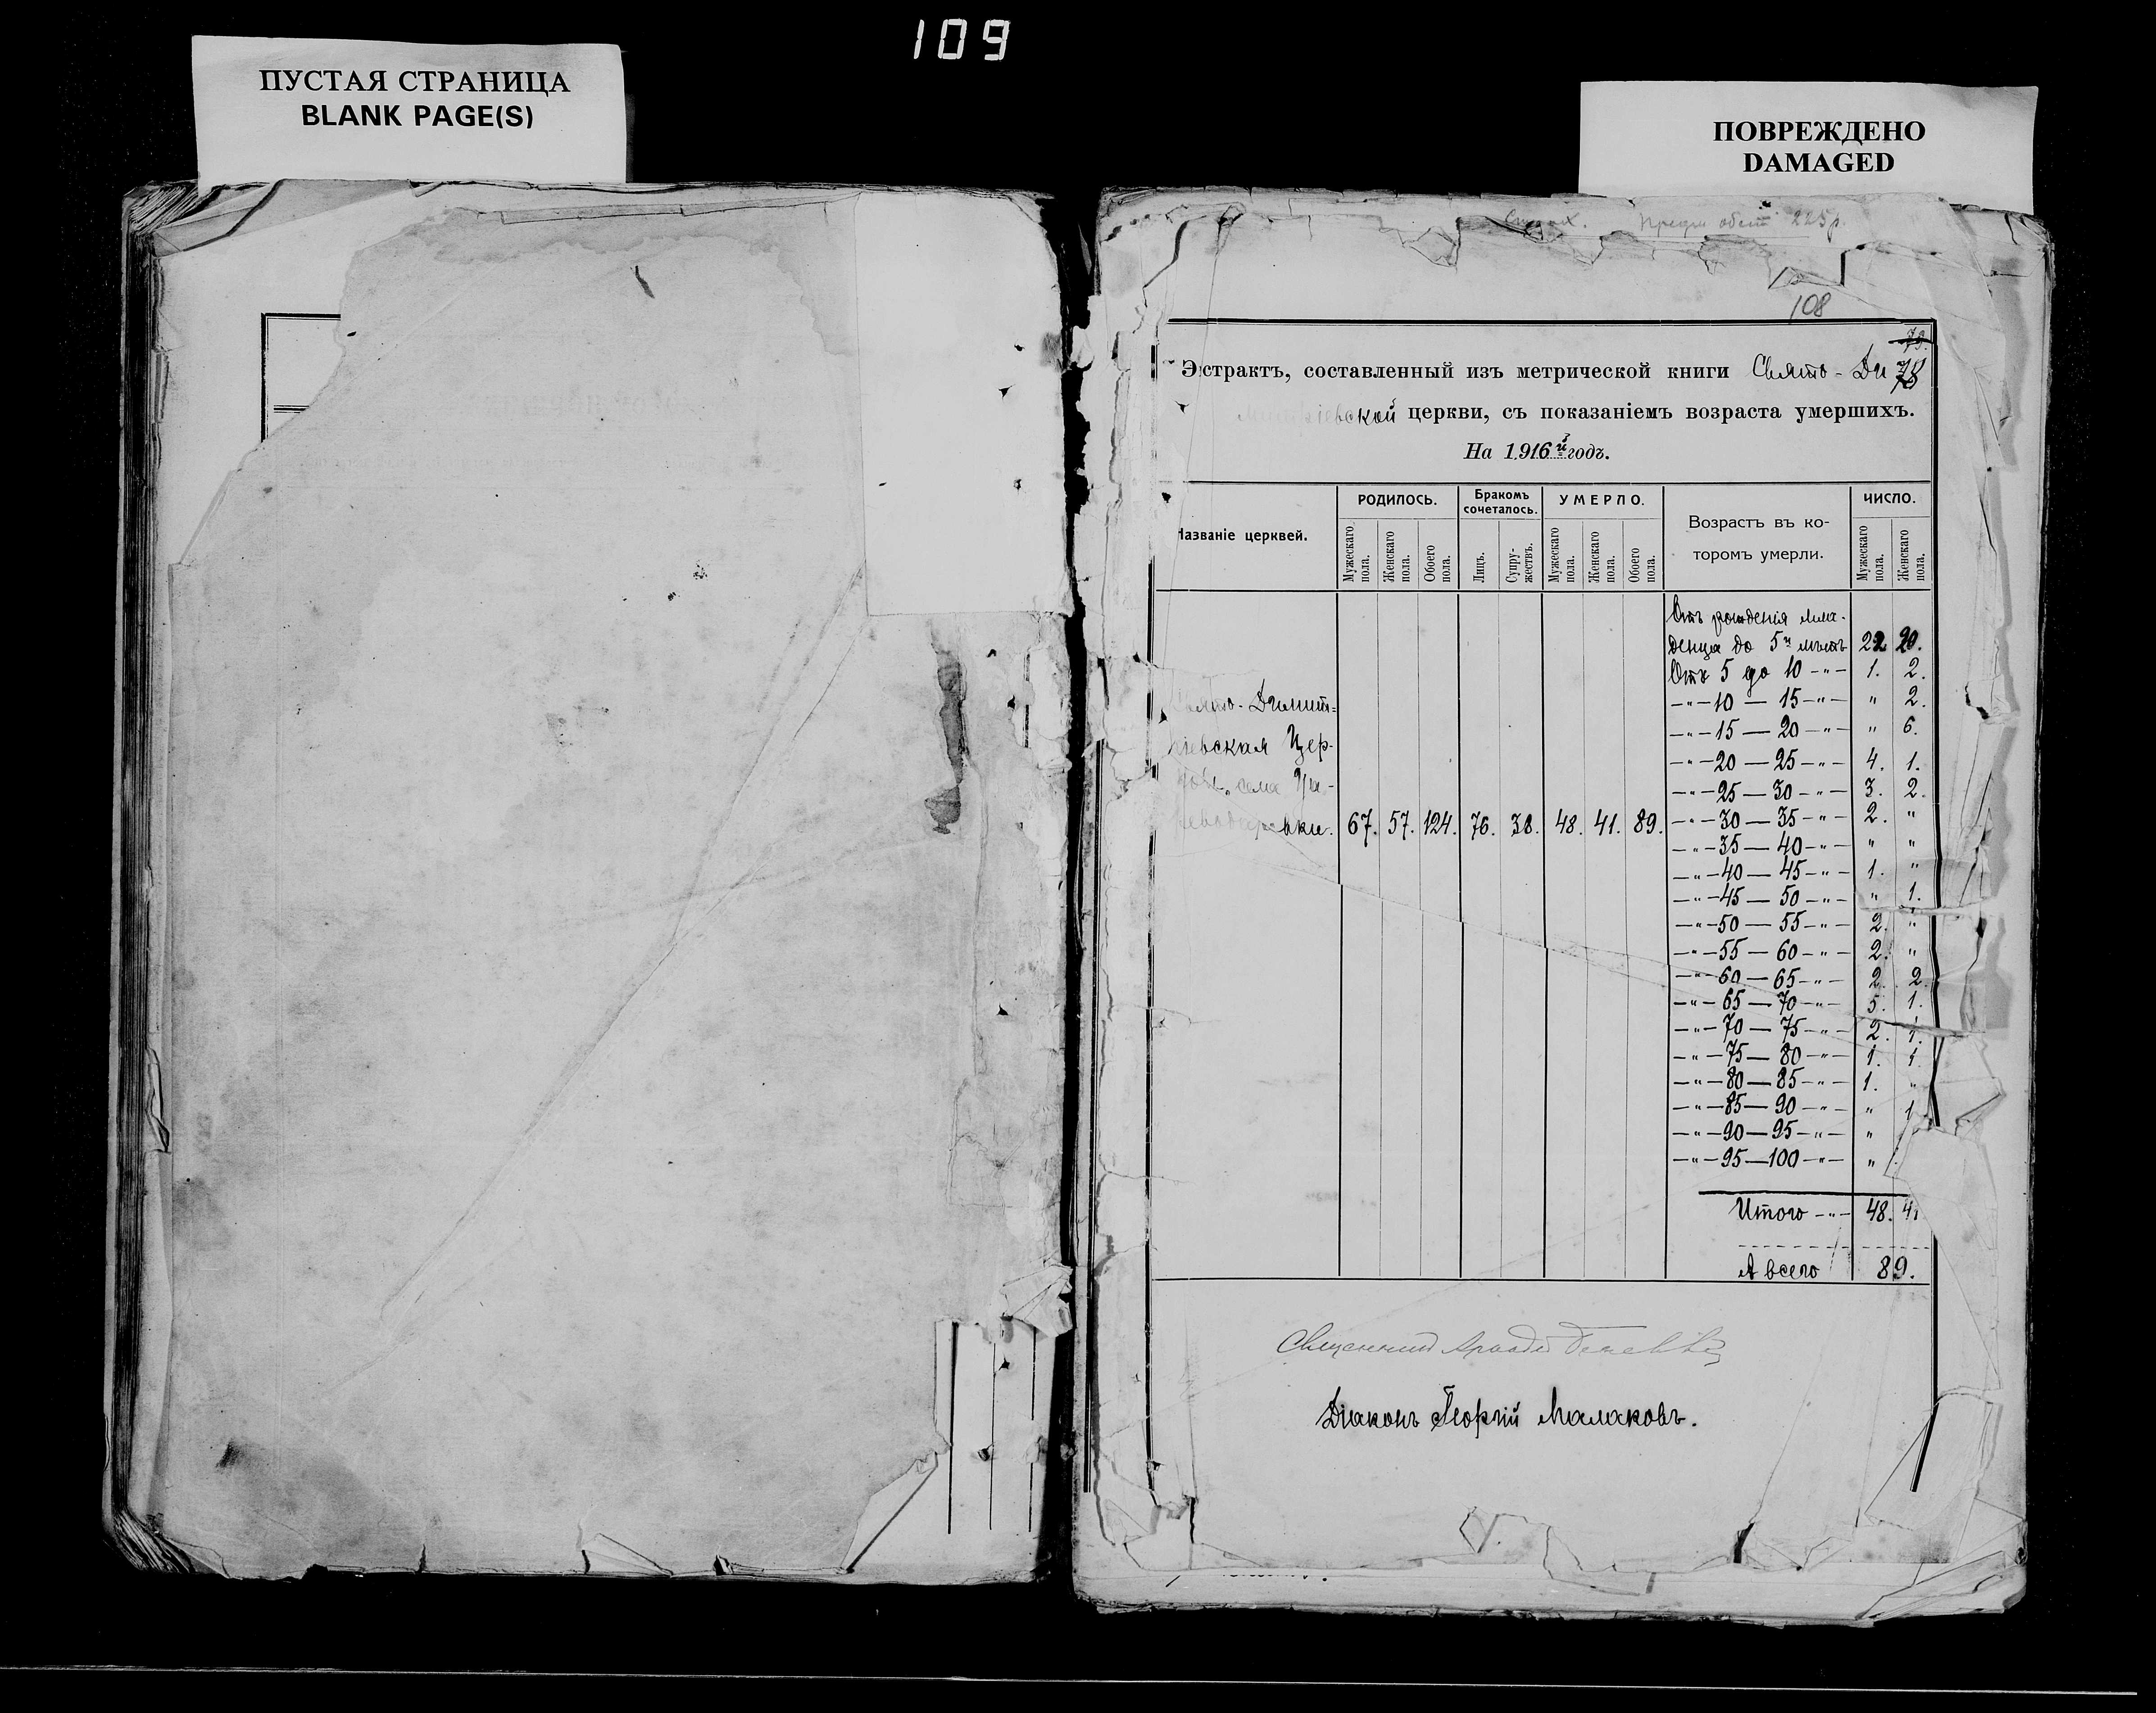 109
ПУСТАЯ СТРАНИЦА
BLANK PAGE(S)
ПОВРЕЖДЕНО
DAMAGED
225 р.
108
79.
78
Экстрактъ, составленный изъ метрической книги Свято-Ди
митріевской церкви, съ показаніемъ возраста умершихъ.
На 1916й годъ.
Названіе церквей.
РОДИЛОСЬ.
Бракомъ сочеталось.
УМЕРЛО.
Возрастъ въ которомъ умерли.
ЧИСЛО.
Мужескаго пола.
Женскаго пола.
Обоего пола.
Лицъ.
Супружествъ.
Мужескаго пола.
Женскаго пола.
Обоего пола.
Мужескаго пола.
Женскаго пола.
Отъ рожденія мла-
денца до 5ти лѣтъ 22. 20.
Отъ 5 до 10 -"- 1. 2.
-"- 10 - 15 -"- " 2.
-"- 15 - 20 -"- " 6.
-"- 20 - 25 -"- 4. 1.
-"- 25 - 30 -"- 3. 2.
-"- 30 - 35 -"- 2. "
-"- 35 - 40 -"- " "
-"- 40 - 45 -"- 1. "
-"- 45 - 50 -"- " 1.
-"- 50 - 55 -"- 2. "
-"- 55 - 60 -"- 2. "
-"- 60 - 65 -"- 2. 2.
-"- 65 - 70 -"- 5. 1.
-"- 70 - 75 -"- 2. 1.
-"- 75 - 80 -"- 1. 1.
-"- 80 - 85 -"- 1. "
-"- 85 - 90 -"- " 1
-"- 90 - 95 -"- "
-"- 95 - 100 -"- "
Свято-Димит=
ріевская Цер-
ковь села
67. 57. 124. 76. 38. 48. 41. 89.
Итого -"- 48. 41
А всего 89.
Священникъ
Діаконъ Георгій Малаковъ.